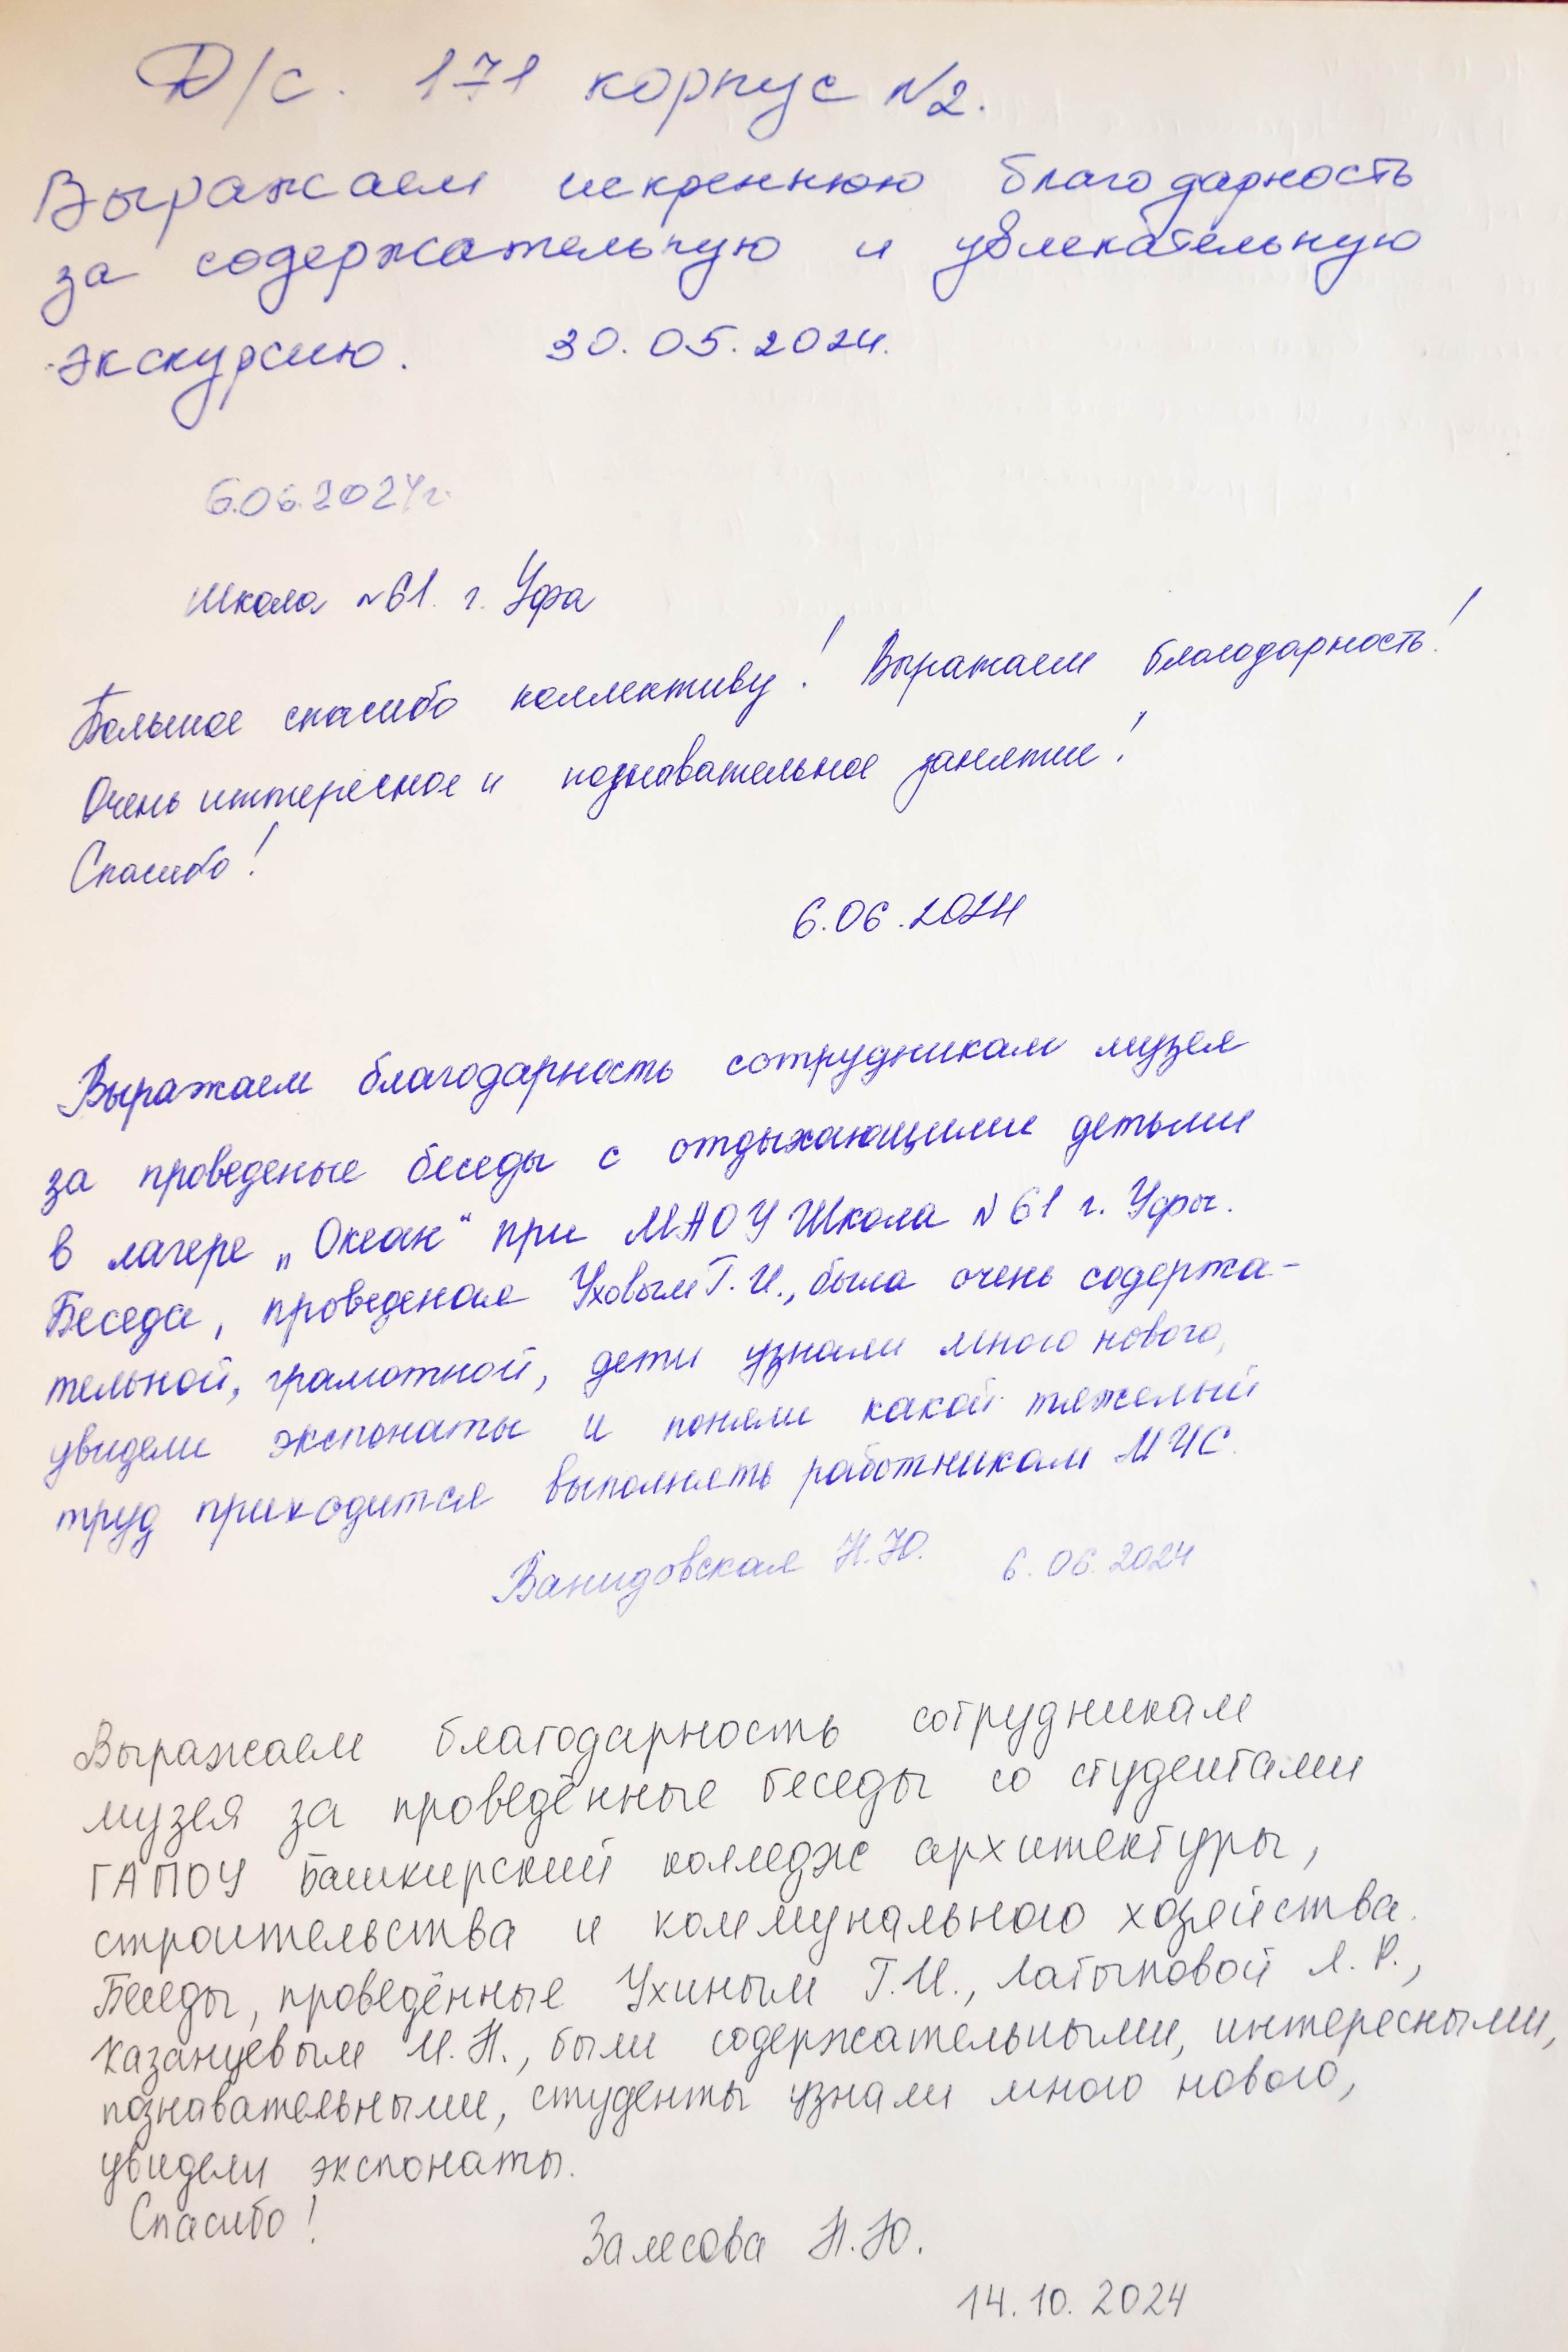 Д/с. 171 корпус №2.
Выражаем искреннюю благодарность
за содержательную и увлекательную
экскурсию. 30.05.2024.
6.06.2024г.
Школа №61. г. Уфа
Большое спасибо коллективу! Выражаем благодарность!
Очень интересное и познавательное занятие!
Спасибо!
6.06.2024
Выражаем благодарность сотрудникам музея
за проведеные беседы с отдыхающими детьми
в лагере „Океан“ при МАОУ Школа №61 г. Уфы.
Беседа, проведеная Уховым Г.И., была очень содержа-
тельной, грамотной, дети узнали много нового,
увидели экспонаты и поняли какой тяжелый
труд приходится выполнять работникам МЧС.
Ванидовская Н.Ю. 6.06.2024
Выражаем благодарность сотрудникам
музея за проведённые беседы со студентами
ГАПОУ Башкирский колледж архитектуры,
строительства и коммунального хозяйства.
Беседы, проведённые Ухиным Г.И., Латыповой Л.Р.,
Казанцевым И.Н., были содержательными, интересными,
познавательными, студенты узнали много нового,
увидели экспонаты.
Спасибо!
Залесова Н.Ю.
14.10.2024